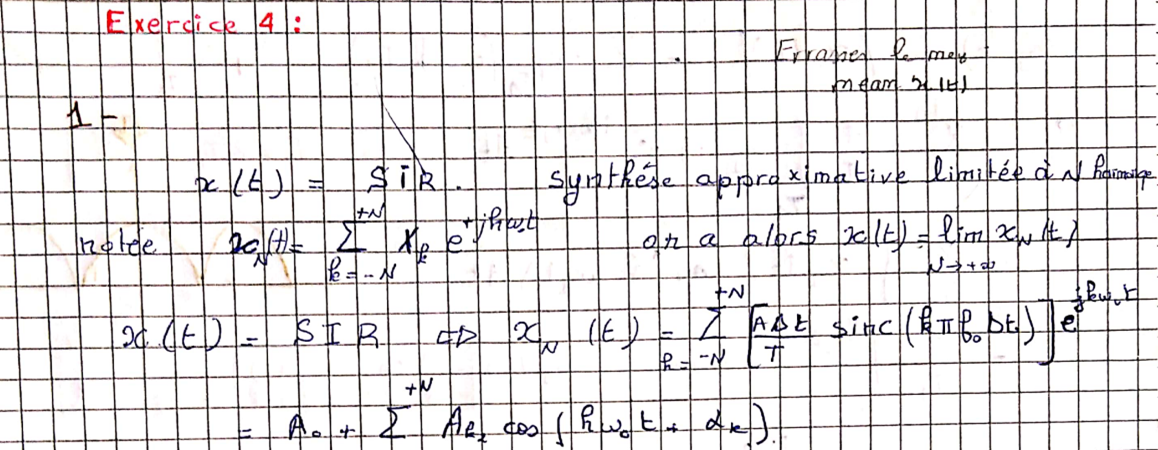 Exercice 4 :
mean x(t)
1 -
x(t) = SIR . synthése approximative limitée à N
notée x_N(t) = ∑_{k=-N}^{+N} X_k e^{+jkω₀t} on a alors x(t) = lim_{N→+∞} x_N(t)
x(t) = SIR ⇔ x_N(t) = ∑_{k=-N}^{+N} [AΔt/T sinc(kπf₀Δt)] e^{jkω₀t}
= A₀ + ∑^{+N} A_k cos(kω₀t + α_k).